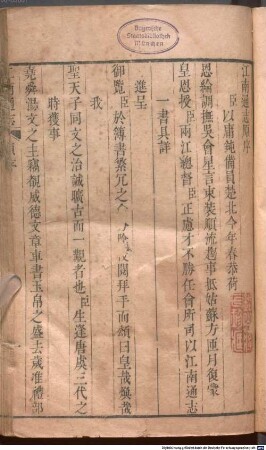 Bayerische
Staatsbibliothek
München
江南通志原序
臣以庸鈍備員楚北今年春恭荷
恩綸調撫吳會星言束裝順流趨事抵姑蘇方匝月復蒙
皇恩授臣兩江總督臣正慮才不勝任會所司以江南通志
一書具詳
進呈
御覽臣於簿書縈冗之
闕拜手而頌曰皇哉煥哉
我
聖天子同文之治誠曠古而一觀者也臣生逢唐虞三代之
時獲事
堯舜湯文之主竊覩威德文章車書玉帛之盛去歲准禮部